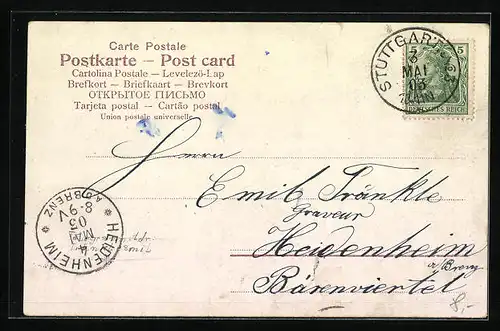 Carte Postale
Postkarte — Post card
Cartolina Postale — Levelező-Lap
Brefkort — Briefkaart — Brevkort
ОТКРЫТОЕ ПИСЬМО
Tarjeta postal — Cartão postal
Union postale universelle
STUTTGART
MAI
03
5 5
DEUTSCHES REICH
Herrn
Emil Tränkle
Graveur
Heidenheim
a/Brenz
Bärenviertel
HEIDENHEIM
A/D BRENZ
4
MAI
03
8-9V
8,-